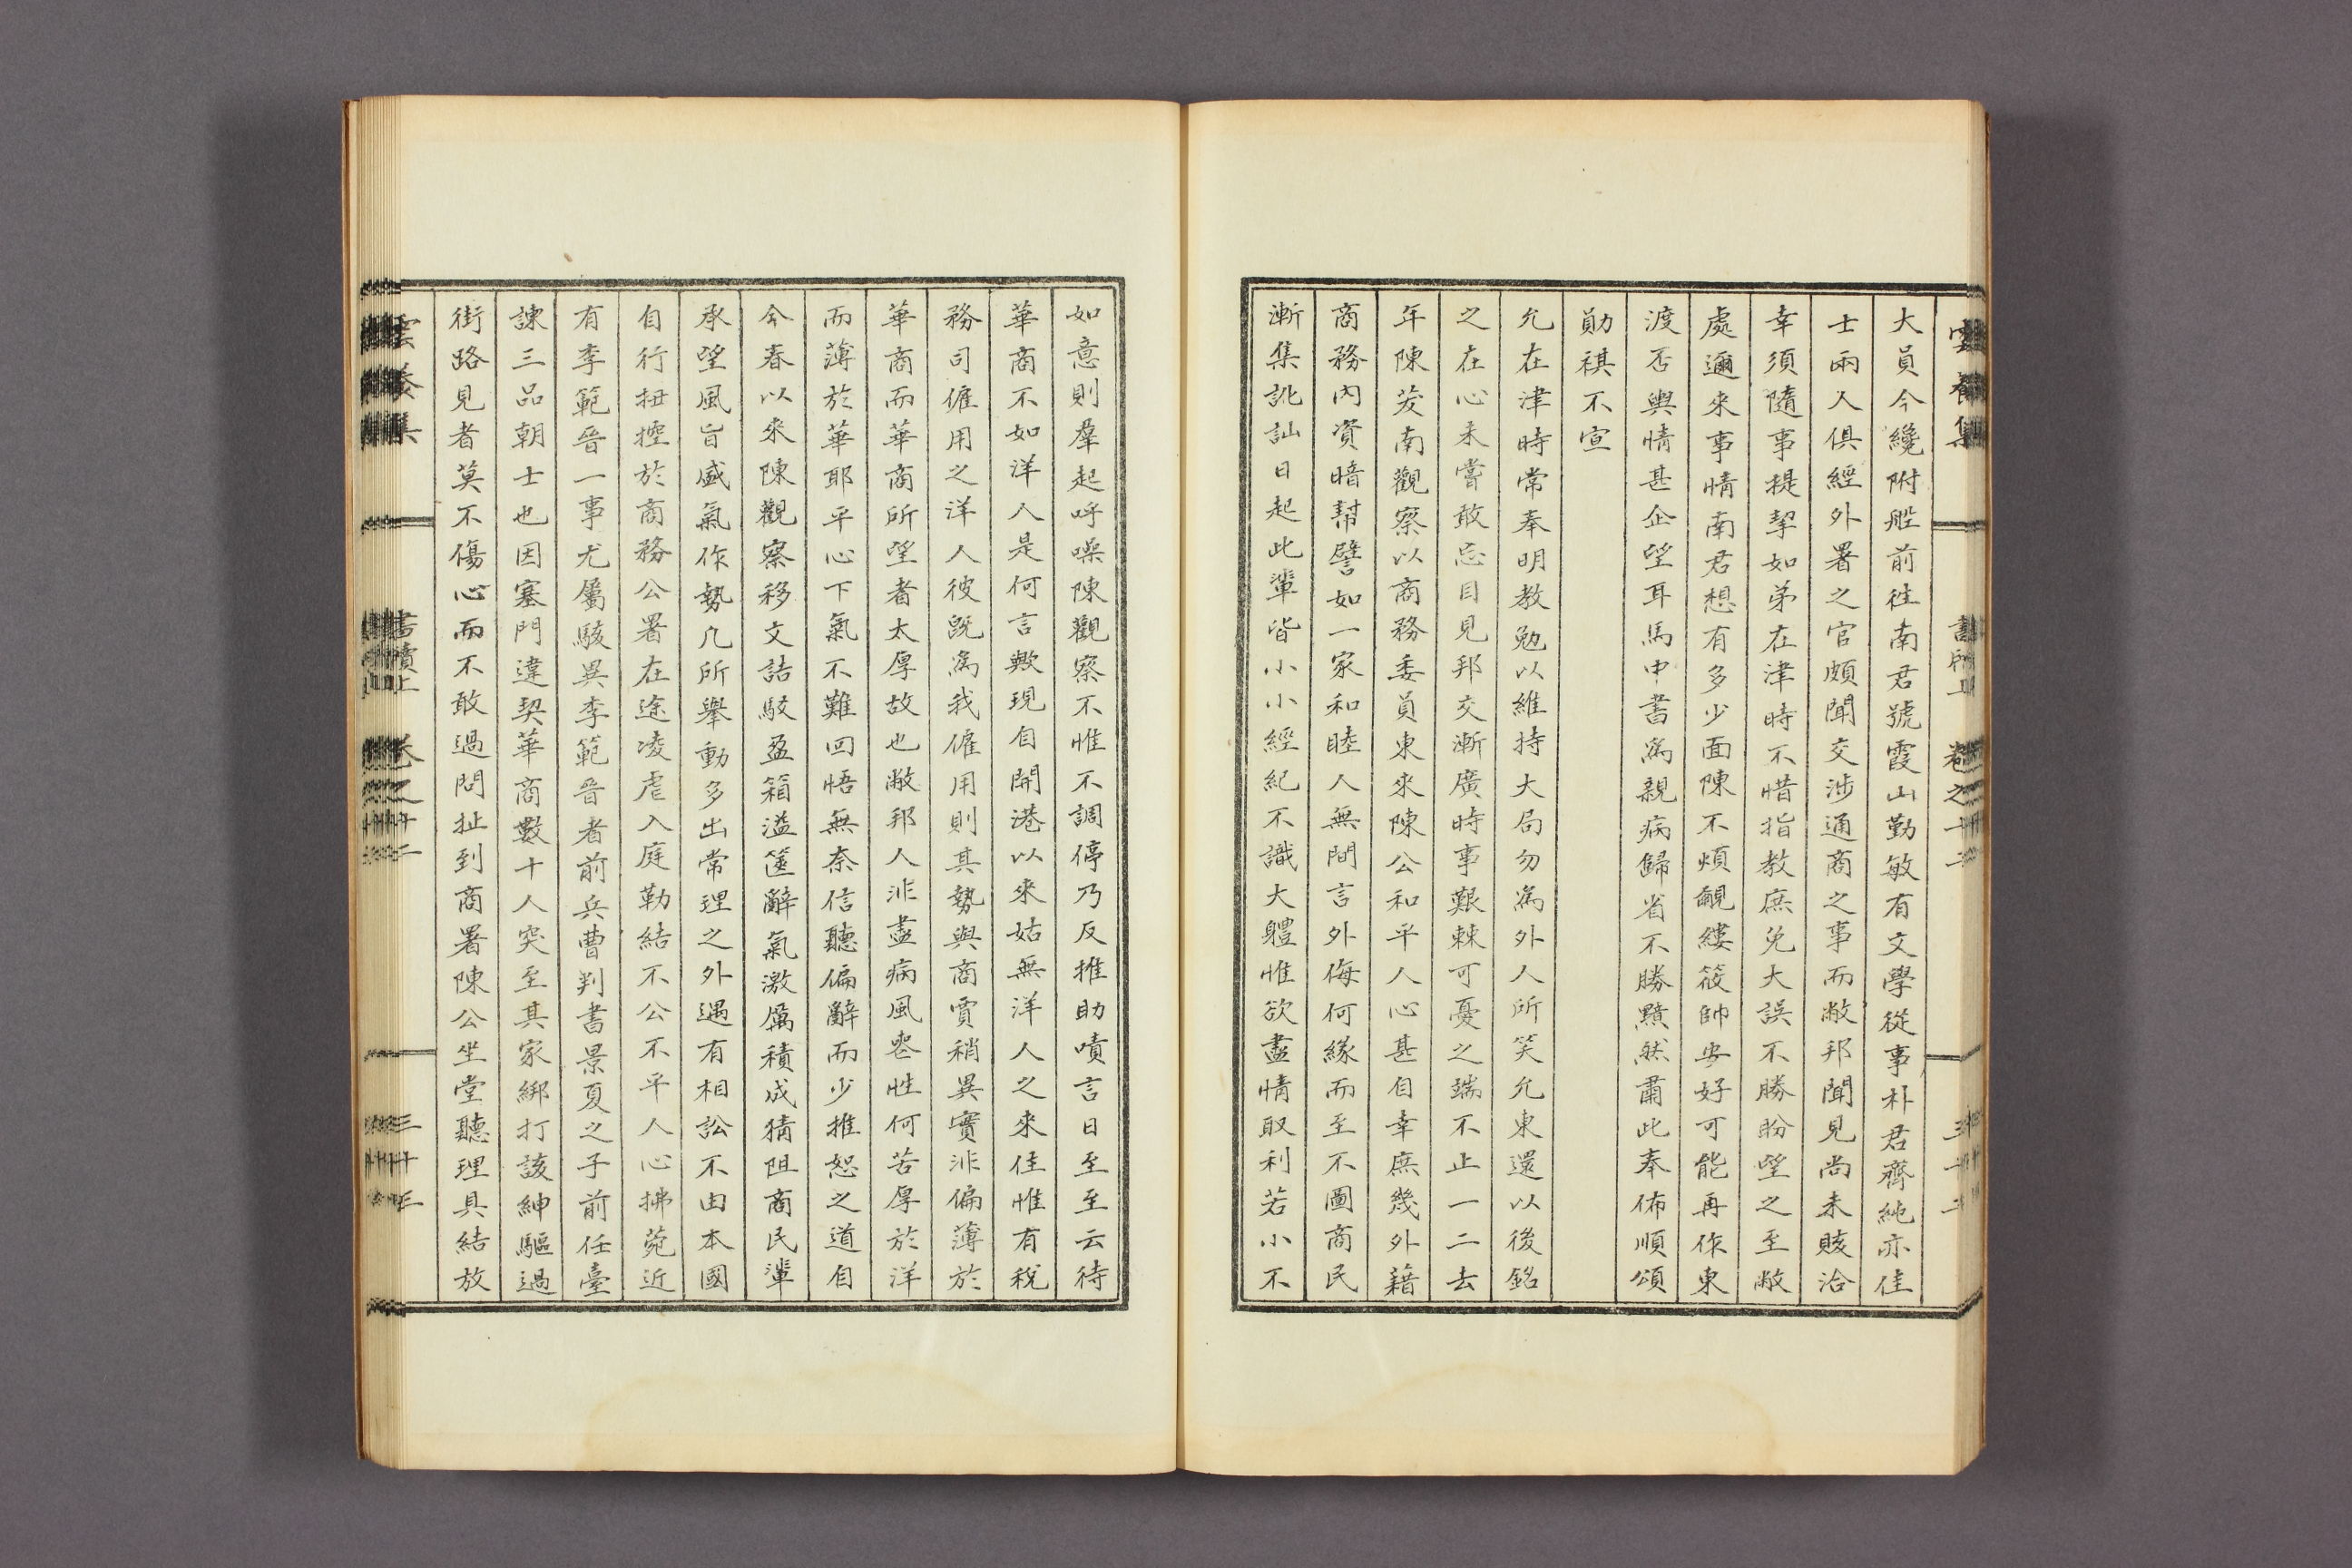 大員今纔附舩前徃南君號霞山勤敏有文學從事朴君齊純亦佳
士兩人俱經外署之官頗聞交涉通商之事而敝邦聞見尚未賅洽
幸須隨事提挈如弟在津時不惜指教庶免大誤不勝盼望之至敝
處邇來事情南君想有多少面陳不煩覼縷筱帥安好可能再作東
渡否輿情甚企望耳馬中書爲親病歸省不勝黯然肅此奉佈順頌
勛祺不宣
允在津時常奉明教勉以維持大局勿爲外人所笑允東還以後銘
之在心未嘗敢忘目見邦交漸廣時事艱棘可憂之端不止一二去
年陳茇南觀察以商務委員東來陳公和平人心甚自幸庶幾外藉
商務內資暗幇譬如一家和睦人無間言外侮何緣而至不圖商民
漸集訛訕日起此輩皆小小經紀不識大軆惟欲盡情取利若小不
如意則羣起呼噪陳觀察不惟不調停乃反推助嘖言日至至云待
華商不如洋人是何言歟現自開港以來姑無洋人之來住惟有稅
務司傭用之洋人彼旣爲我傭用則其勢與商賈稍異實非偏薄於
華商而華商所望者太厚故也敝邦人非盡病風喪性何苦厚於洋
而薄於華耶平心下氣不難回悟無奈信聽偏辭而少推恕之道自
今春以來陳觀察移文詰駁盈箱溢篋辭氣激厲積成猜阻商民輩
承望風旨盛氣作勢凡所舉動多出常理之外遇有相訟不由本國
自行扭控於商務公署在途凌虐入庭勒結不公不平人心拂菀近
有李範晉一事尤屬駭異李範晉者前兵曹判書景夏之子前任臺
諫三品朝士也因塞門違契華商數十人突至其家綁打該紳驅過
街路見者莫不傷心而不敢過問扯到商署陳公坐堂聽理具結放
雲養集
書牘上
卷之十二
三十三